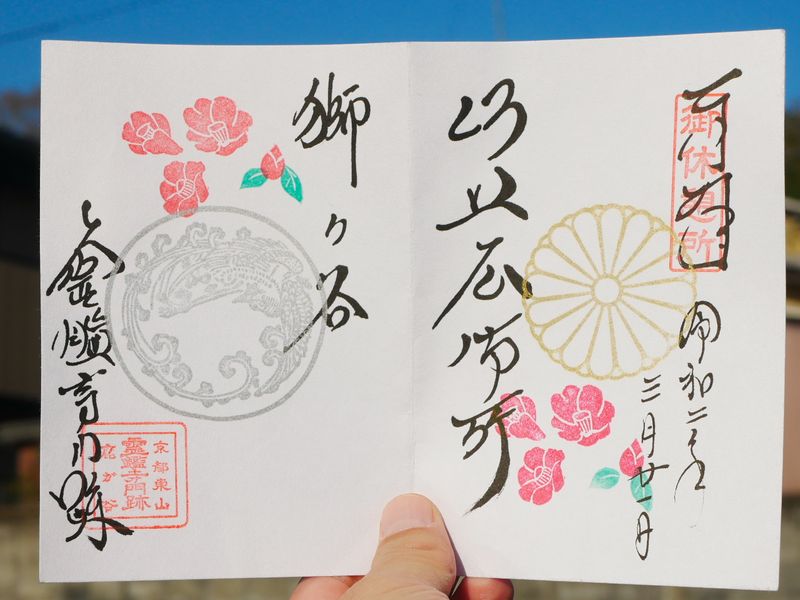 御休息所
令和二年
三月廿一日
比丘尼御所
獅ヶ谷
霊鑑寺門跡
京都東山
靈鑑寺門跡
鹿ケ谷